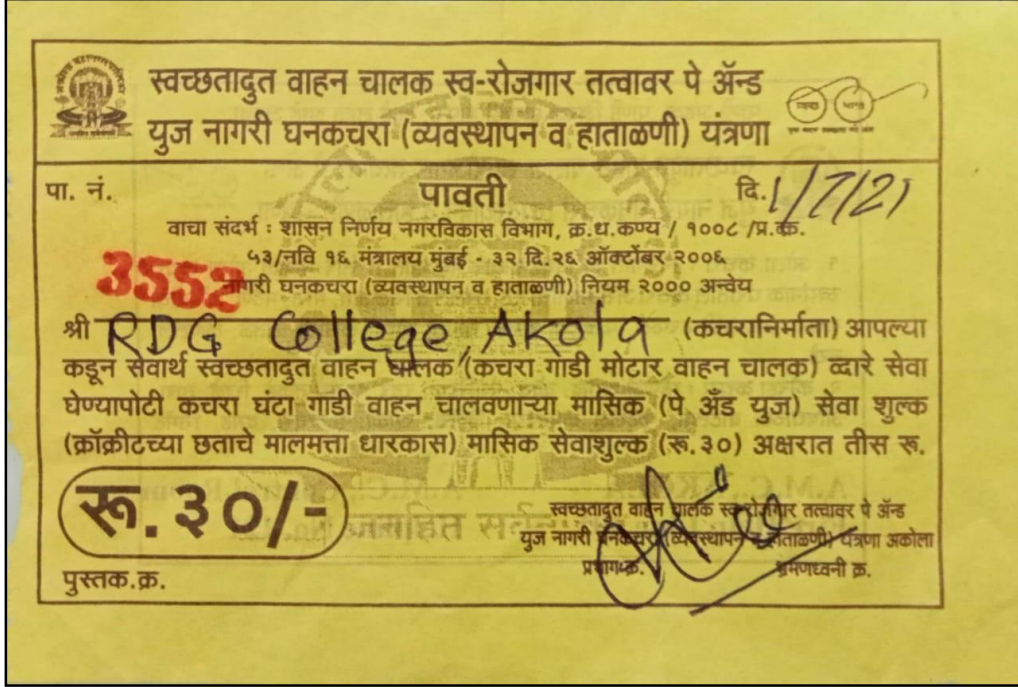 स्वच्छतादुत वाहन चालक स्व-रोजगार तत्वावर पे ॲन्ड
युज नागरी घनकचरा (व्यवस्थापन व हाताळणी) यंत्रणा
पा. नं.
पावती
दि. 1/7/21
वाचा संदर्भ : शासन निर्णय नगरविकास विभाग, क्र.ध.कण्य / १००८ /प्र.क्र.
५३/नवि १६ मंत्रालय मुंबई - ३२ दि.२६ ऑक्टोंबर २००६
3552
नागरी घनकचरा (व्यवस्थापन व हाताळणी) नियम २००० अन्वेय
श्री RDG College, Akola (कचरानिर्माता) आपल्या
कडून सेवार्थ स्वच्छतादुत वाहन चालक (कचरा गाडी मोटार वाहन चालक) व्दारे सेवा
घेण्यापोटी कचरा घंटा गाडी वाहन चालवणाऱ्या मासिक (पे. अँड युज) सेवा शुल्क
(क्रॉक्रीटच्या छताचे मालमत्ता धारकास) मासिक सेवाशुल्क (रू.३०) अक्षरात तीस रू.
रू. ३०/-
स्वच्छतादुत वाहन चालक स्व-रोजगार तत्वावर पे ॲन्ड
युज नागरी घनकचरा (व्यवस्थापन व हाताळणी) यंत्रणा अकोला
प्रभाग क्र. भ्रमणध्वनी क्र.
पुस्तक.क्र.